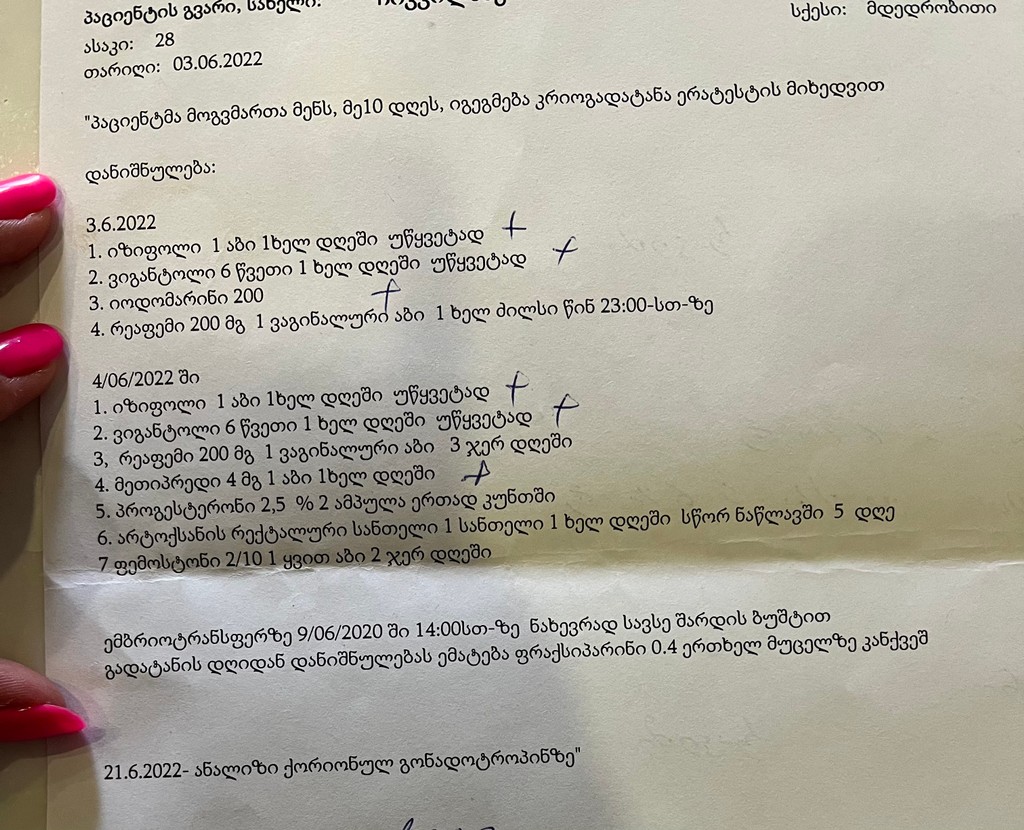 პაციენტის გვარი, სახელი:
სქესი: მდედრობითი
ასაკი: 28
თარიღი: 03.06.2022
"პაციენტმა მოგვმართა მენს, მე10 დღეს, იგეგმება კრიოგადატანა ერატესტის მიხედვით
დანიშნულება:
3.6.2022
1. იზიფოლი 1 აბი 1ხელ დღეში უწყვეტად +
2. ვიგანტოლი 6 წვეთი 1 ხელ დღეში უწყვეტად +
3. იოდომარინი 200 +
4. რეაფემი 200 მგ 1 ვაგინალური აბი 1 ხელ ძილსი წინ 23:00-სთ-ზე
4/06/2022 ში
1. იზიფოლი 1 აბი 1ხელ დღეში უწყვეტად +
2. ვიგანტოლი 6 წვეთი 1 ხელ დღეში უწყვეტად +
3, რეაფემი 200 მგ 1 ვაგინალური აბი 3 ჯერ დღეში
4. მეთიპრედი 4 მგ 1 აბი 1ხელ დღეში +
5. პროგესტერონი 2,5 % 2 ამპულა ერთად კუნთში
6. არტოქსანის რექტალური სანთელი 1 სანთელი 1 ხელ დღეში სწორ ნაწლავში 5 დღე
7 ფემოსტონი 2/10 1 ყვით აბი 2 ჯერ დღეში
ემბრიოტრანსფერზე 9/06/2020 ში 14:00სთ-ზე ნახევრად სავსე შარდის ბუშტით
გადატანის დღიდან დანიშნულებას ემატება ფრაქსიპარინი 0.4 ერთხელ მუცელზე კანქვეშ
21.6.2022- ანალიზი ქორიონულ გონადოტროპინზე"